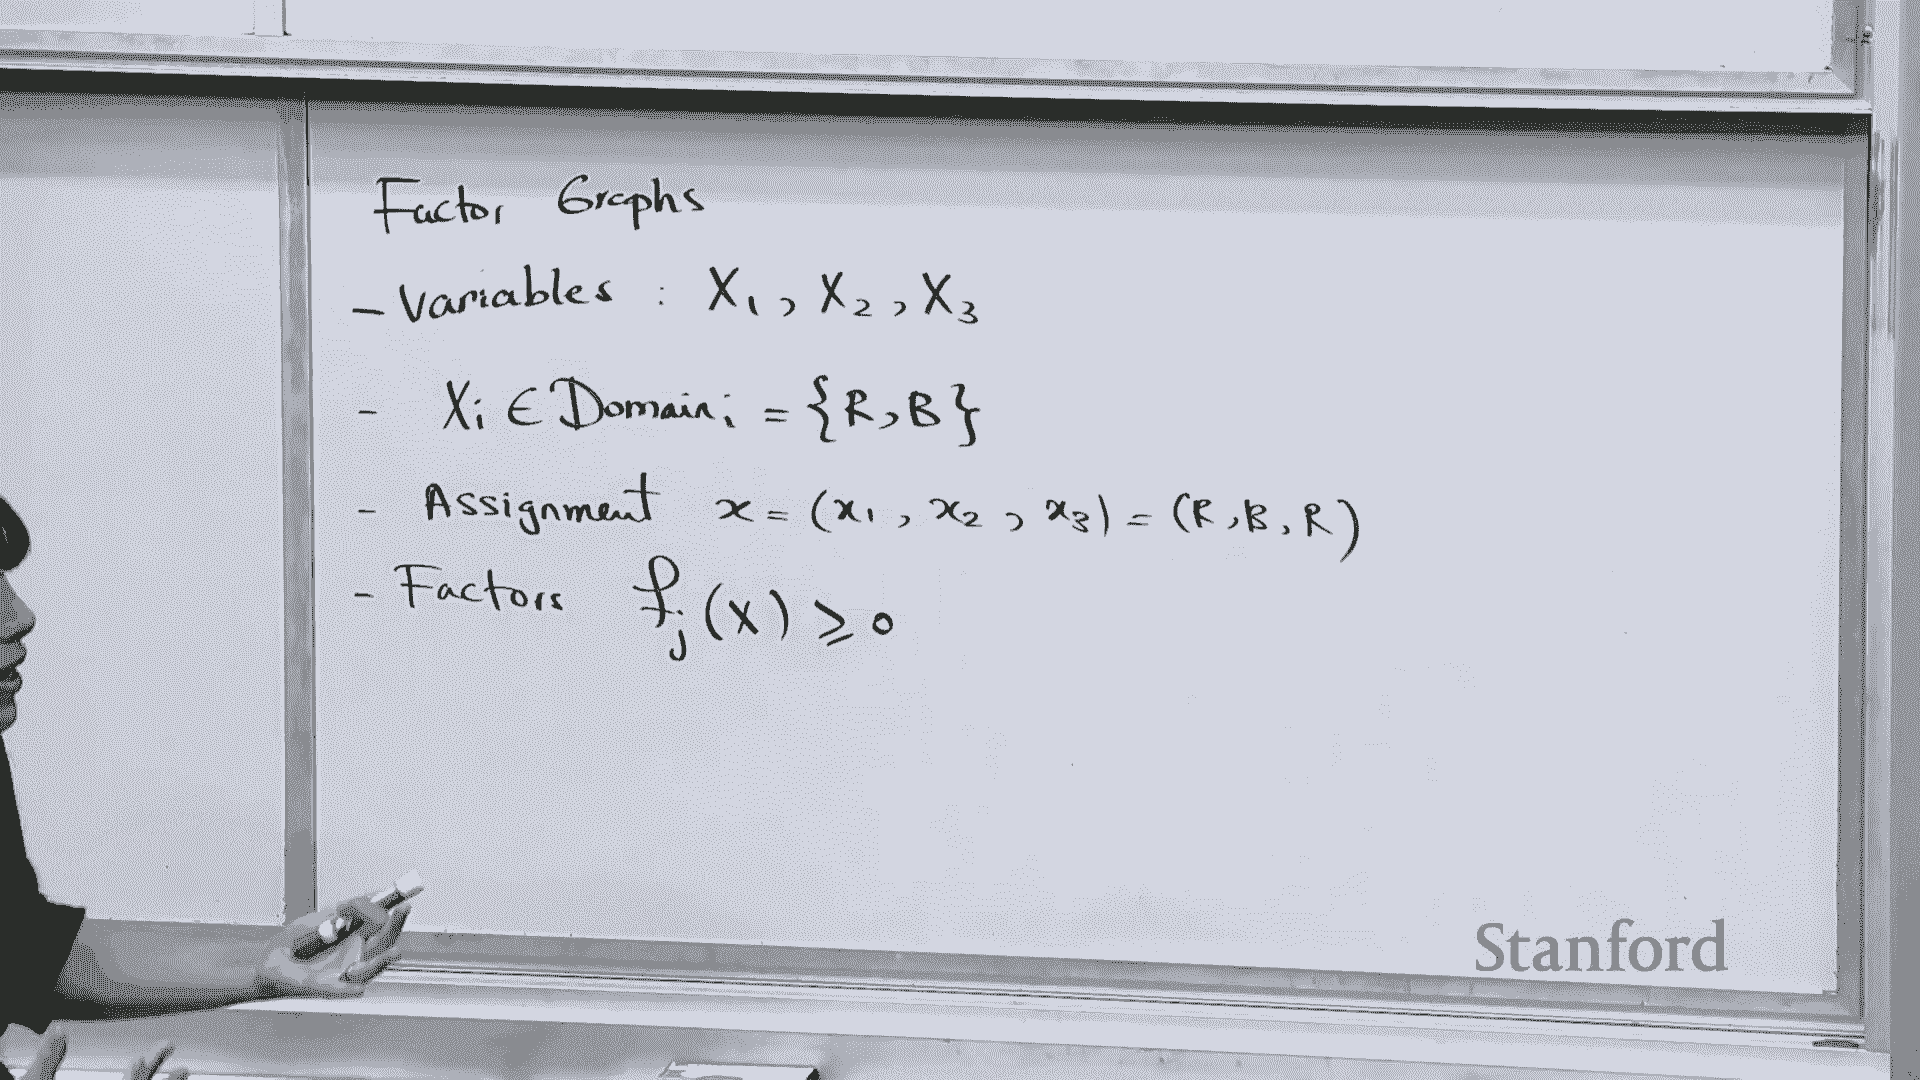 Factor Graphs
- Variables : X₁, X₂, X₃
- Xᵢ ∈ Domainᵢ = {R, B}
- Assignment x = (x₁, x₂, x₃) = (R, B, R)
- Factors fⱼ(X) ≥ 0
Stanford